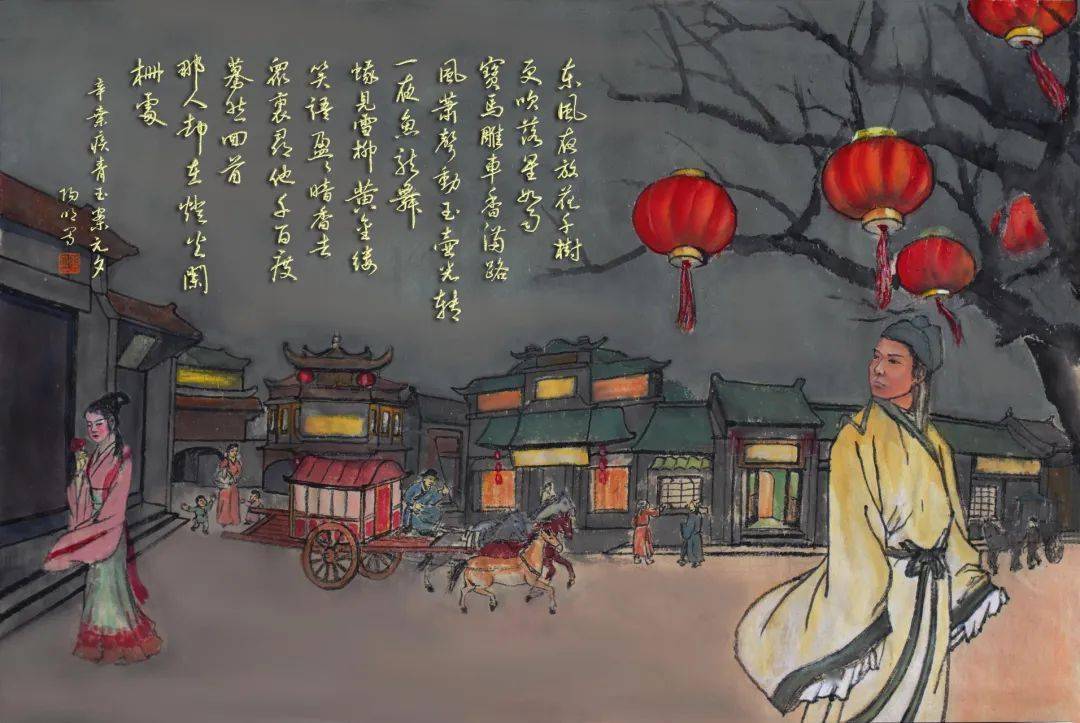 东風夜放花千樹
更吹落星如雨
寶馬雕車香滿路
風蕭聲動玉壺光转
一夜魚龍舞
蛾兒雪柳黄金缕
笑語盈々暗香去
眾裏尋他千百度
驀然回首
那人却在燈火阑
栅處
辛棄疾青玉案元夕